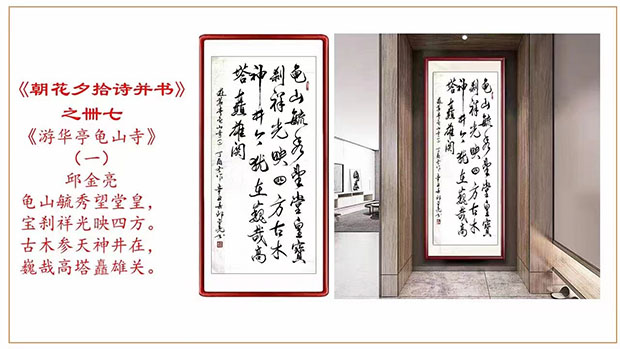 《朝花夕拾诗并书》
之卌七
《游华亭龟山寺》
（一）
邱金亮
龟山毓秀望堂皇，
宝刹祥光映四方。
古木参天神井在，
巍哉高塔矗雄关。
龟山毓秀望堂皇寶
刹祥光映四方古木
神井今犹在巍哉高
塔矗雄関
龟山毓秀望堂皇寶
刹祥光映四方古木
神井今犹在巍哉高
塔矗雄関